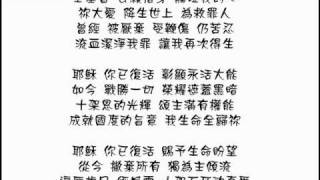 祢大愛 降生世上 為救罪人
曾經 被厭棄 受鞭傷 仍苦忍
流血潔淨我罪 讓我再次得生
耶穌 你已復活 彰顯永活大能
如今 戰勝一切 榮耀遮蓋黑暗
十架恩的光輝 頌主滿有權能
成就國度的旨意 我生命全歸祢
耶穌 你已復活 賜予生命盼望
從今 撇棄所有 獨為主傾流